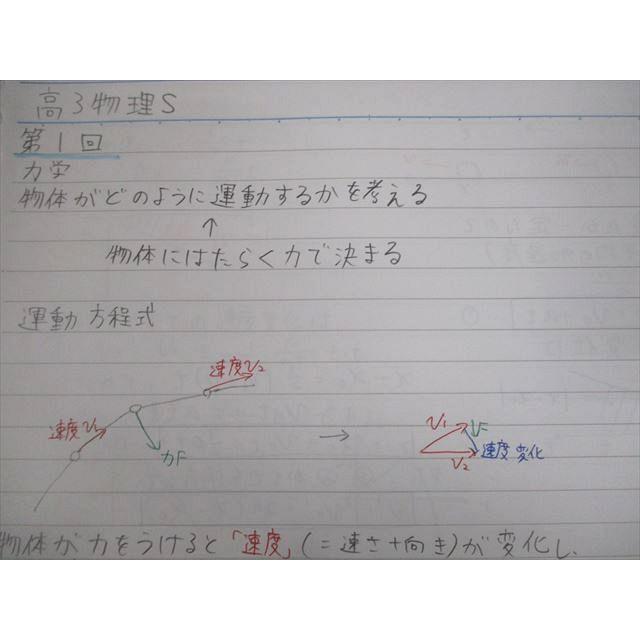 高3物理S
第1回
力学
物体がどのように運動するかを考える
↑
物体にはたらく力で決まる
運動方程式
速度v₂
速度v₁
力F
→
v₁
v₂
速度変化
物体が力をうけると「速度」(=速さ+向き)が変化し、